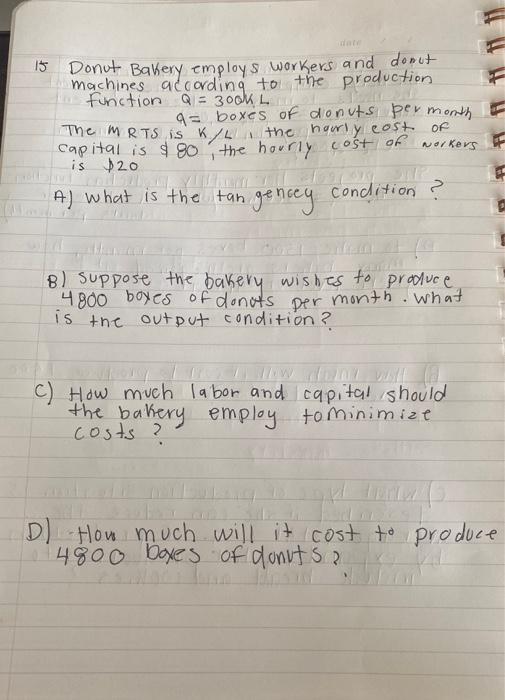 date
15 Donut Bakery employs workers and donut
machines according to the production
function Q = 300K L
q = boxes of donuts per month
The MRTS is K/L, the hourly cost of
capital is $80, the hourly cost of workers
is $20
A) what is the tangencey condition?
B) Suppose the bakery wishes to produce
4800 boxes of donots per month. What
is the output condition?
C) How much labor and capital should
the bakery employ to minimize
costs?
D) How much will it cost to produce
4800 boxes of donuts?